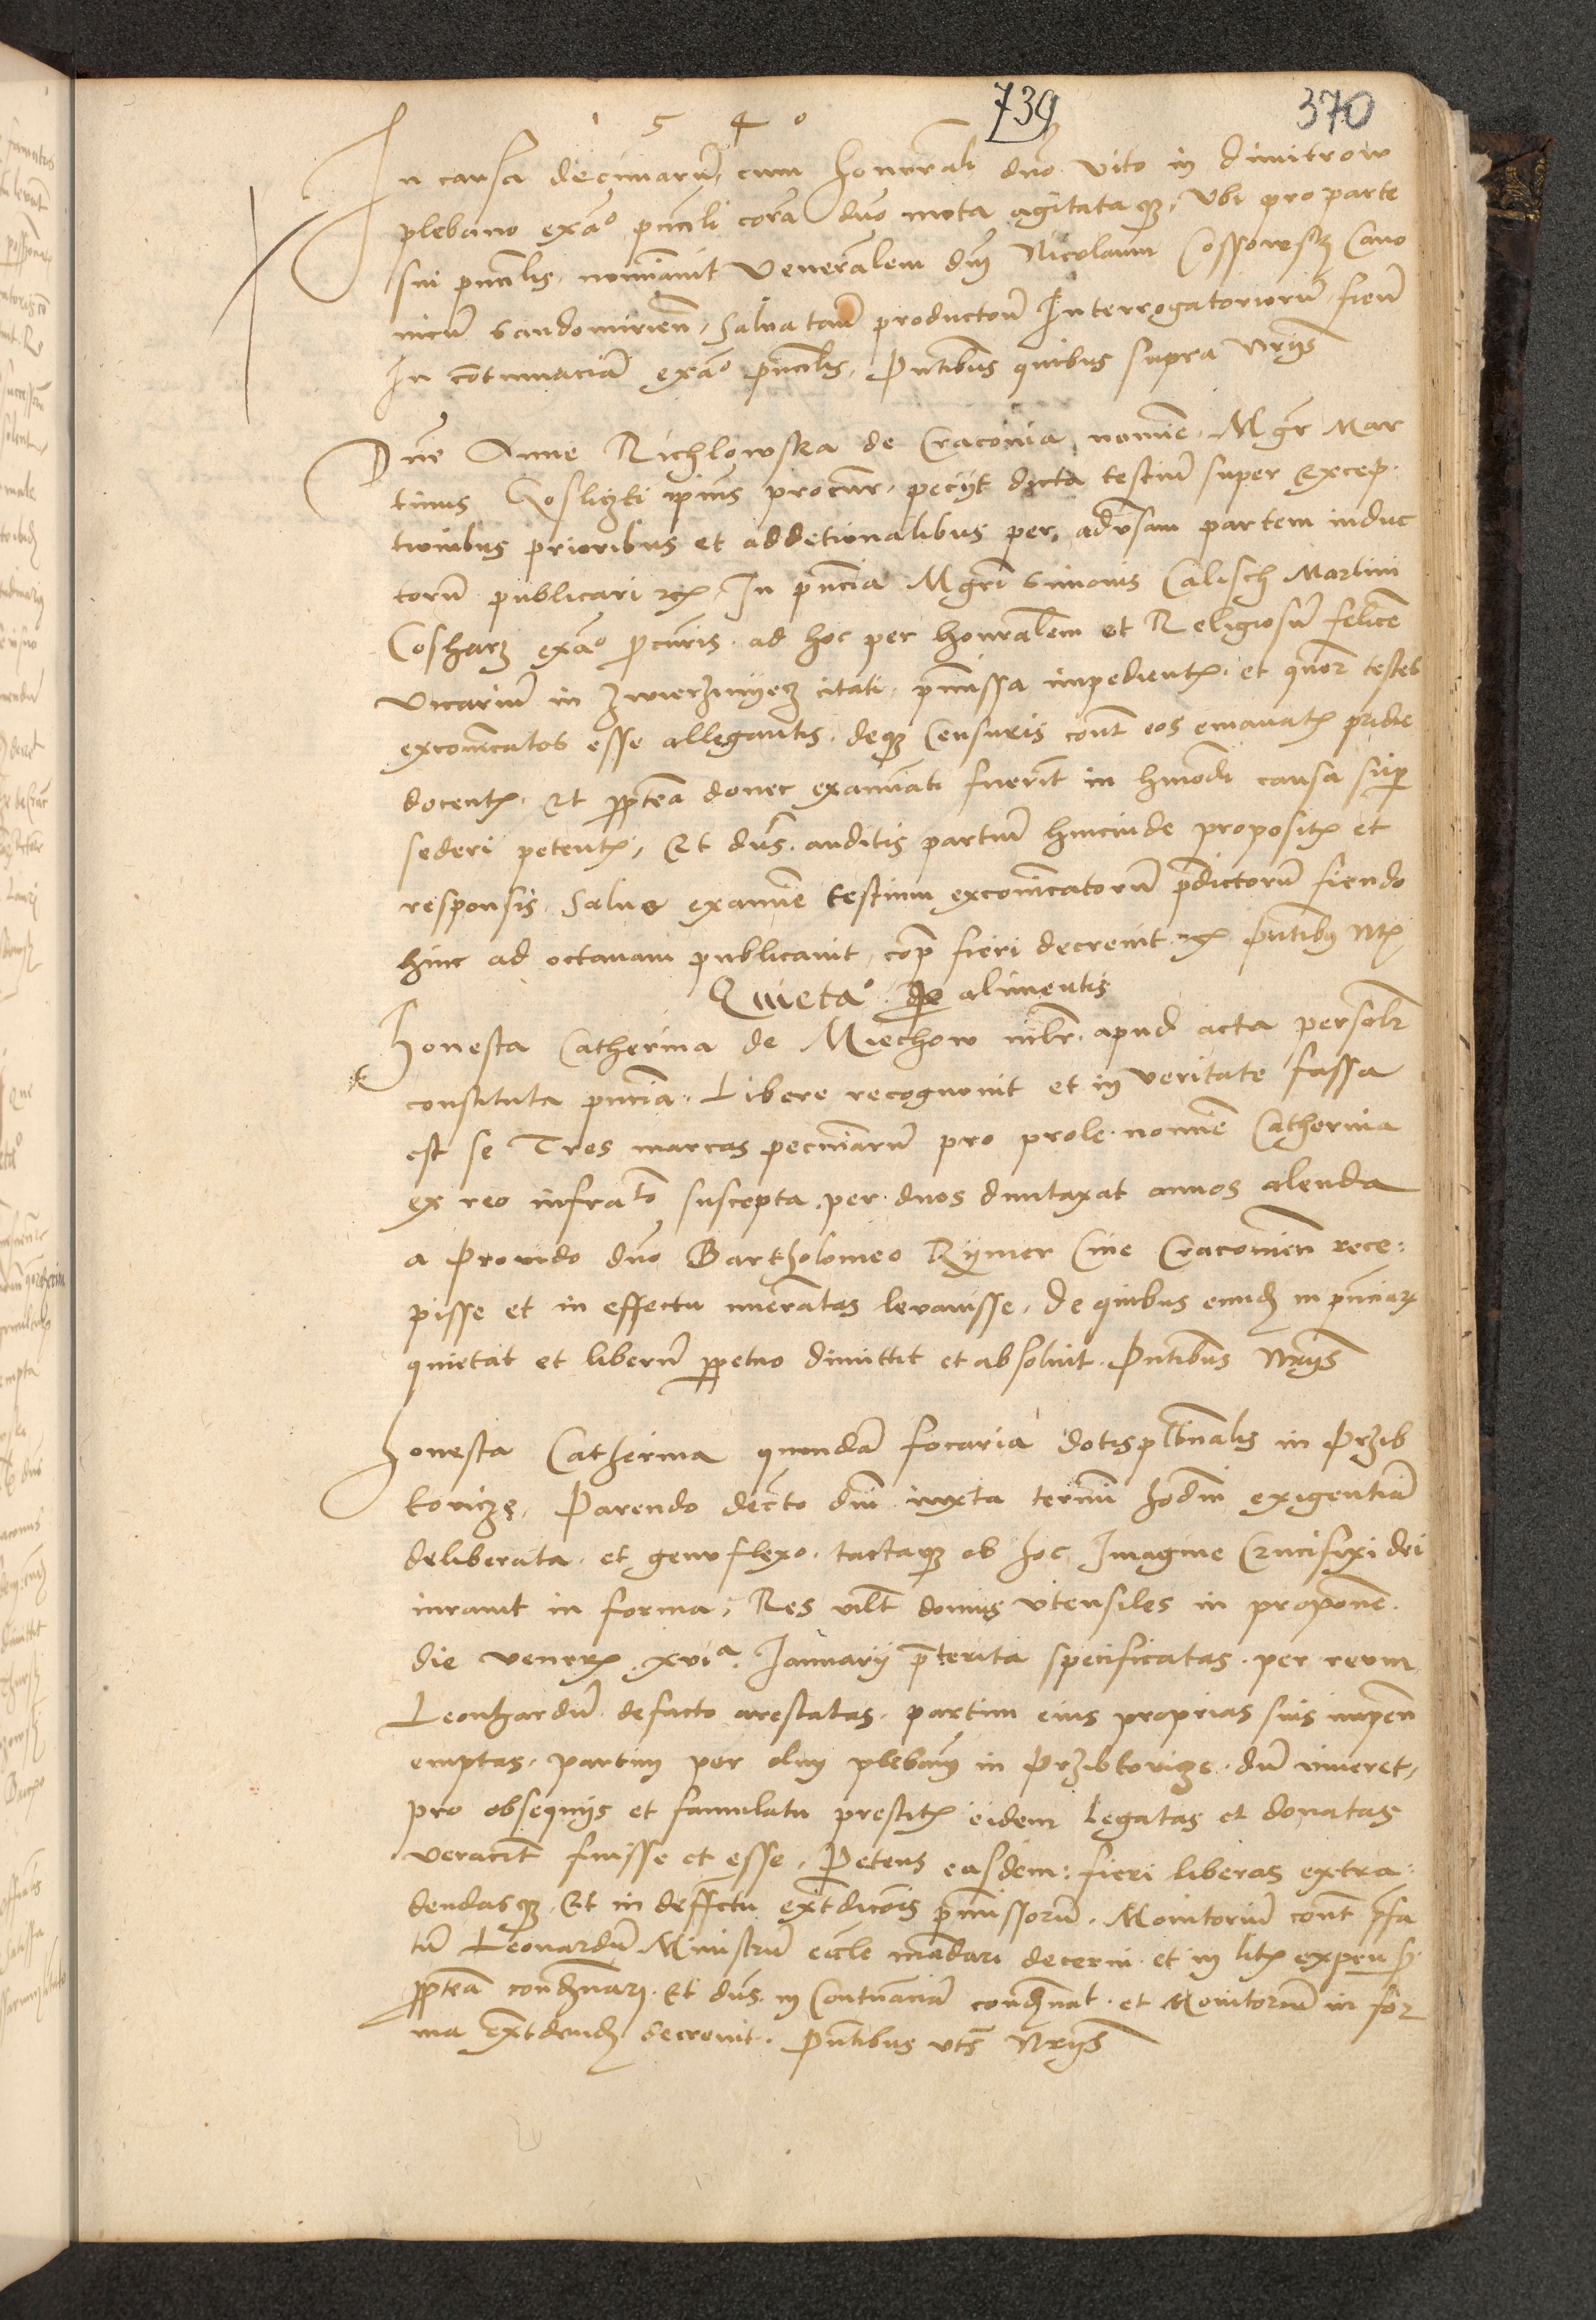 739 370
1 5 4 0
In causa decimarum cum honorali dno Vito in Dimitrow
plebano exao pncpli cora dno mota agitataqz. Ubi pro parte
sui pncplis nominavit Veneralem dnm Nicolaum Cossowskj Cano
nicum Sandomirien. Salva tamen productorum Interrogatoriorum fienda
In contumaciam exao pncplis. Pntibus quibus supra Nrys
Dne Anne Richlowska de Cracovia nomine Mgr Mar
tinus Goslizki ipius procur. petyt dicta testium super excep
tionibus prioribus et addetionalibus per adversam partem induc
torum publicari etc. In pncia Mgri Simonis Calisch Martini
Coshary exao procuris ad hoc per honoralem et Religiosum felicem
vicarium in Zwierzinyecz citati, pmissa impedientis et quor testes
excomicatos esse allegantis, deqz censuris cont eos emanatis padie
docentis. Et ppterea donec examinati fuerint in hmodi causa super
sederi petentis. Et dns auditis partium hincinde propositis et
responsis, Salvo examine testium excomicatorum pdictorum fiendo
hinc ad octavam publicavit, copiam fieri decrevit etc. pntibus Ntis
Quietao de alimentis
Honesta Catherina de Miechow mlr. apud acta personlr
constituta pncia. Libere recognovit et in veritate fassa
est se Tres marcas pecuniarum pro prole nomine Catherina
ex reo infrato suscepta per duos duntaxat annos alenda
a Provido dno Bartholomeo Rymer Cive Cracovien rece:
pisse et in effectu numeratas levavisse. De quibus eundem in pnciarum
quietat et liberum ppetuo dimittit et absolvit. Pntibus Nrys
Honesta Catherina quondam focaria dotis plbnalis in Przib
torizę, Parendo decreto dni iuxta termini hodni exigentiam
deliberata et genu flexo tactaqz ob hoc Imagine Crucifixi dei
iuravit in forma, Res ullt domus utensiles in propone
die veneris xvia January preterita specificatas per reum
Leonhardum defacto arestatas, partim eius proprias suis impen
emptas, partim per olim plebanum in Przibtorizę dum viveret,
pro obsequys et famulatu prestitis eidem legatas et donatas
veracit fuisse et esse. Petens easdem fieri liberas extra:
dendasqz. Et in deffectu exrdicois pmissorum, Monitorium cont pfa
tum Leonardum Ministrum eccle mandari decerni et in litis expen
ppterea condemnari. Et dns in Contumaciam condemnat et Monitorium in for
ma extdendum decrevit. Pntibus uts Nrys